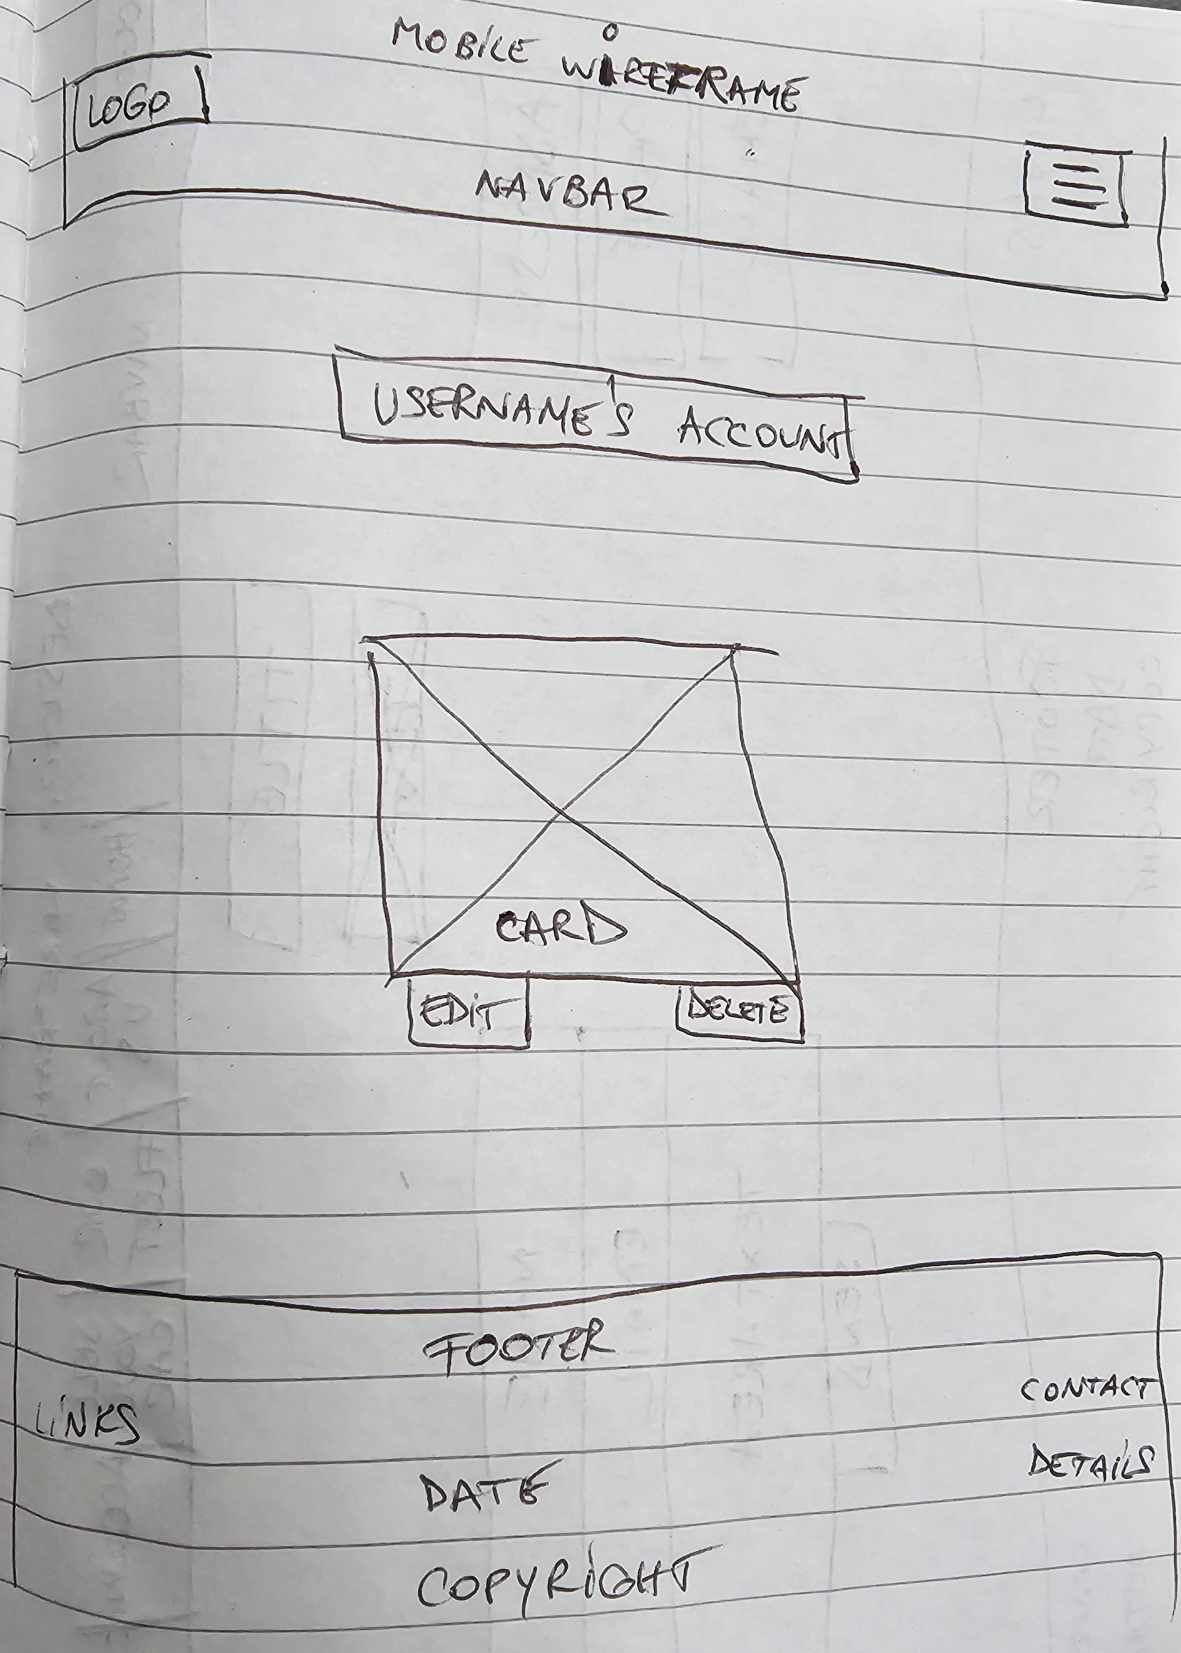 MOBILE WIREFRAME
LOGO
NAVBAR
USERNAME'S ACCOUNT
CARD
EDIT
DELETE
FOOTER
LINKS
CONTACT
DETAILS
DATE
COPYRIGHT